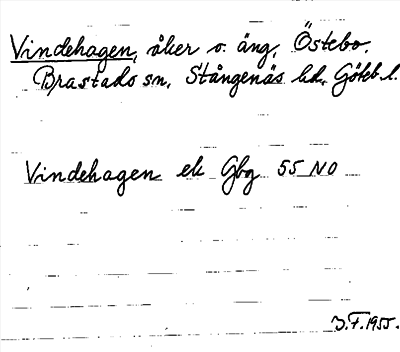 Vindehagen, åker o. äng, Östebo,
Brastads sn, Stångenäs hd, Göteb. l.
Vindehagen ek Gbg 55 NO
J.F. 1955.